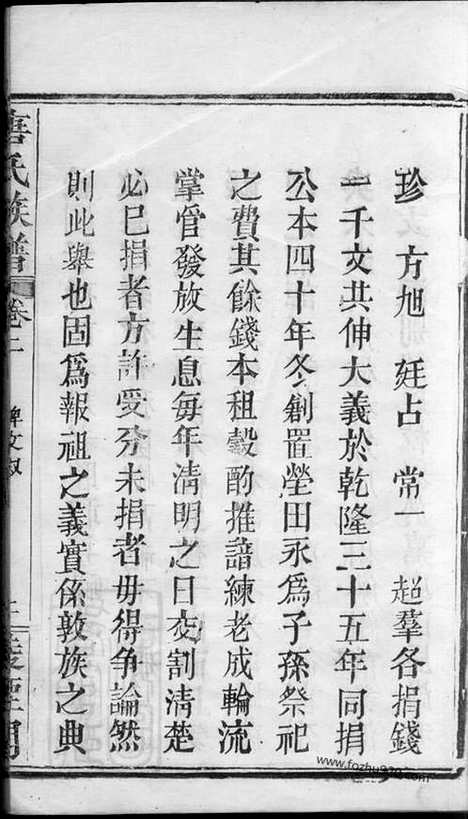 珍　方旭　廷占　常一　超羣各捐錢
一千文共伸大義於乾隆三十五年同捐
公本四十年冬創置塋田永爲子孫祭祀
之費其餘錢本租穀酌推諳練老成輪流
掌管發放生息每年清明之日交割清楚
必已捐者方許受分未捐者毋得争論然
則此舉也固爲報祖之義實係敦族之典
氏族譜
卷二
www.fozhu920.com